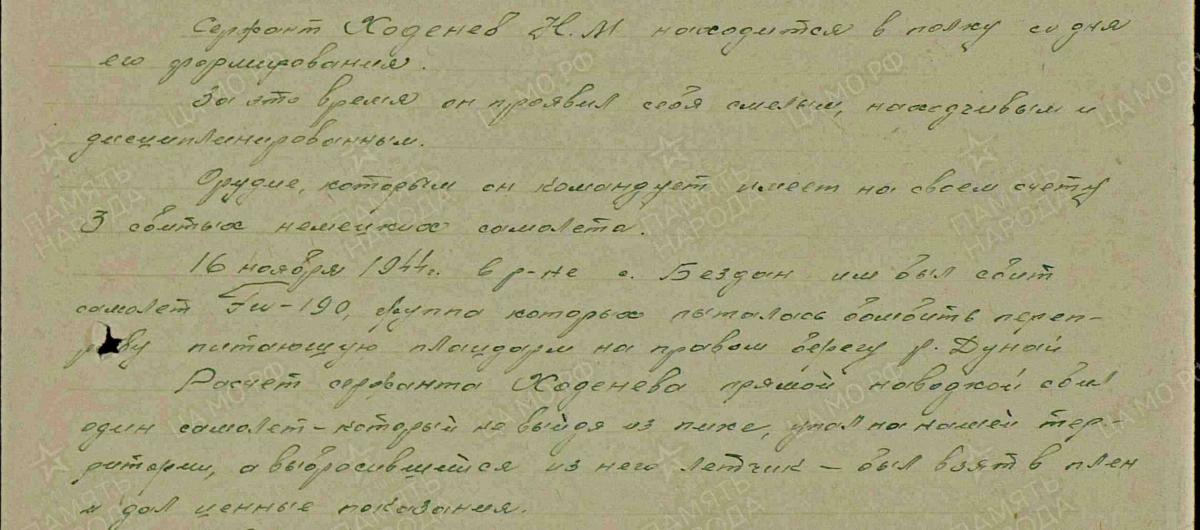 Сержант Ходенев Н.М находится в полку со дня
его формирования.
За это время он проявил себя смелым, находчивым и
дисциплинированным.
Орудие, которым он командует имеет на своем счету
3 сбитых немецких самолета.
16 ноября 1944г. в р-не с. Бездан им был сбит
самолет Fw-190, группа которых пыталась бомбить переп-
раву питающую плацдарм на правом берегу р. Дунай
Расчет сержанта Ходенева прямой наводкой сбил
один самолет - который не выйдя из пике, упал на нашей тер-
ритории, а выбросившийся из него летчик - был взят в плен
и дал ценные показания.
ПАМЯТЬ НАРОДА
ЦАМО РФ